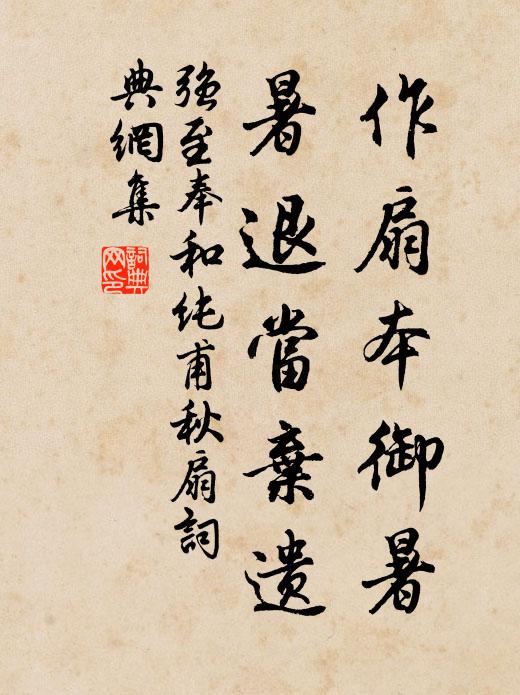 作扇本御暑
暑退當棄遺
强至奉和纯甫秋扇詞
典網集
詞典网印